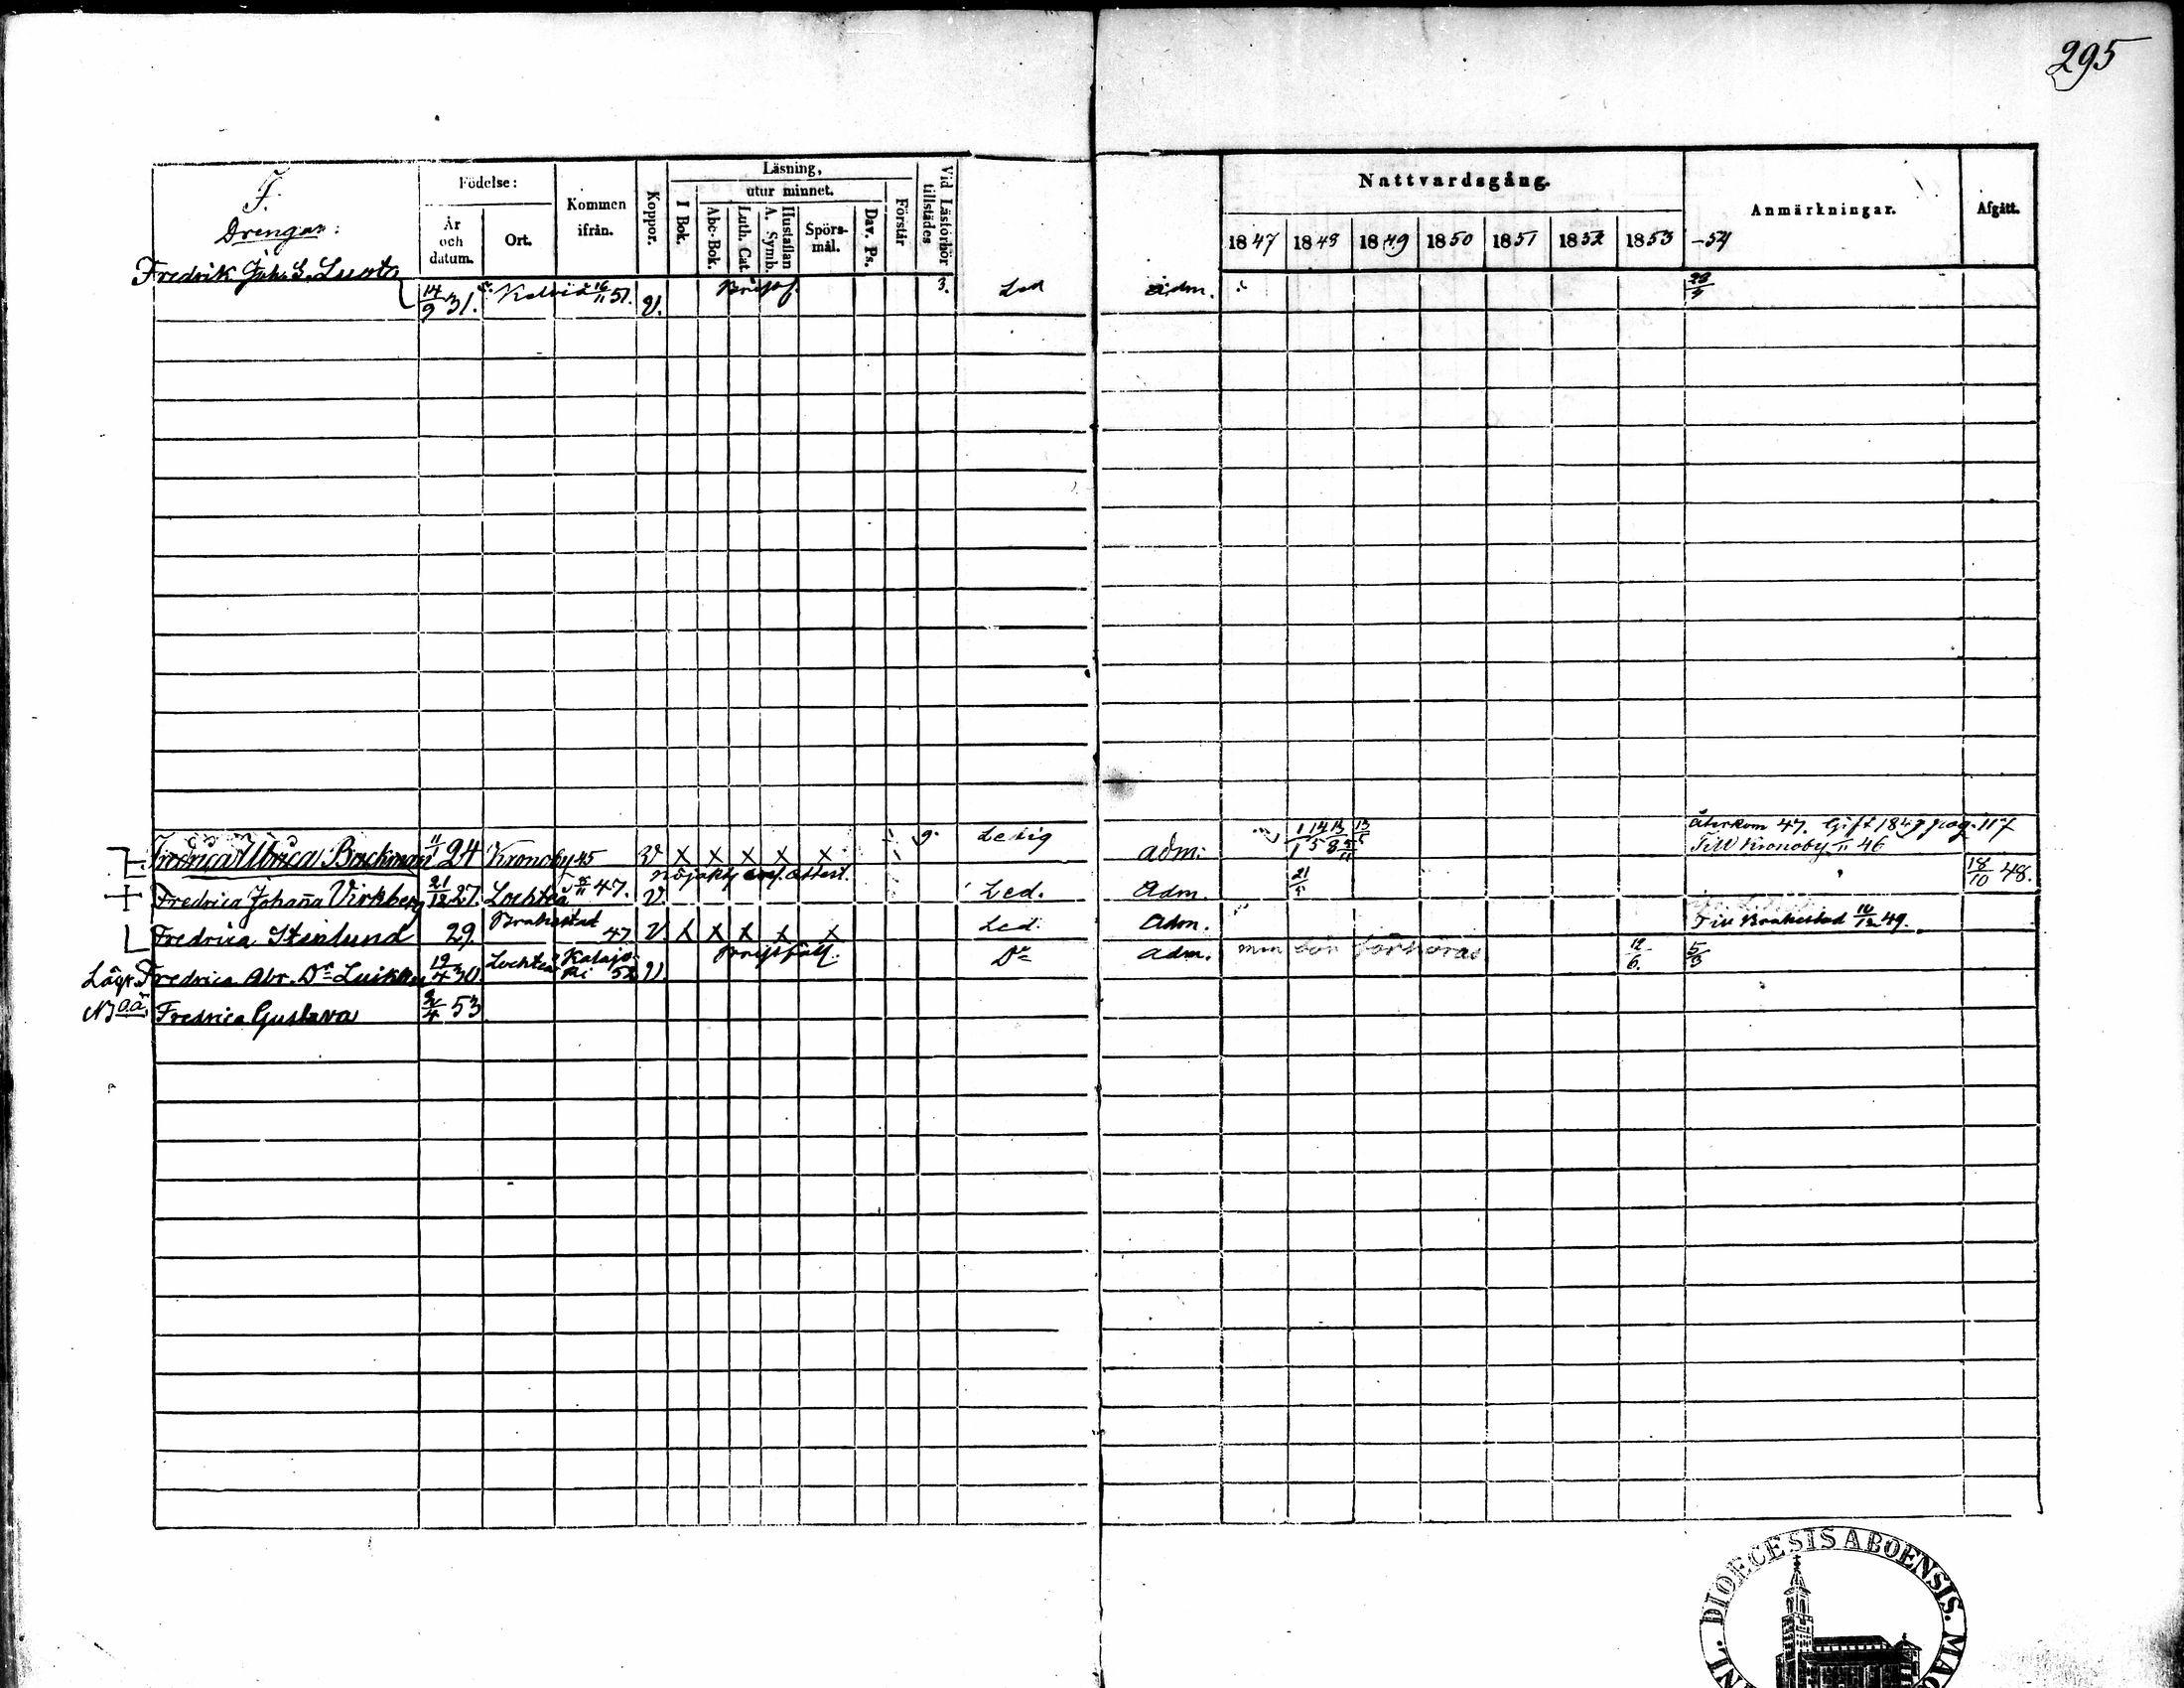 295
F.
Drengar:
Födelse:
År och datum.
Ort.
Kommen ifrån.
Koppor.
Läsning,
I Bok.
utur minnet.
Abc-Bok.
Luth. Cat.
Hustaflan A. Symb.
Spörsmål.
Dav. Ps.
Förstår
Vid Läsförhör tillstädes
Nattvardsgång.
1847 1848 1849 1850 1851 1852 1853 -54
Anmärkningar.
Afgått.
Fredrik Joh. S. Luoto
14/9 31. Kelviå 16/11 51. V. 3. Led adm.
Fredrica Ulrica Backman 11/1 24 Kronoby 45 V X X X X X 9. Ledig adm: Återkom 47. Gift 1849 pag. 117
Till Kronoby 11 46
Fredrica Johaña Virkberg 21/12 27. Lochteå 47. V. nöjaktig attest. Led. Adm. 21/5 18/10 48.
Fredrica Stenlund 29. Brahestad 47 V. X X X X X Led. Adm. Till Brahestad 49.
Lägr. Fredrica Abr. Dr Luikku 19/4 30. Lochteå Kalajoki 52 V. Dº adm. bör förhöras 12/6. 5/3
NB o.ä. Fredrica Gustava 2/4 53
DIOECESIS ABOENSIS.